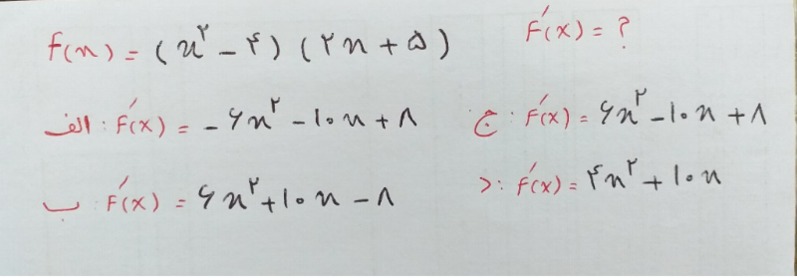 f(x) = (x² - ۴) (۲x + ۵)   F′(x) = ?
الف : F′(x) = - ۶x² - ۱۰x + ۸   ج : F′(x) = ۶x² - ۱۰x + ۸
ب : F′(x) = ۶x² + ۱۰x - ۸   د : F′(x) = ۴x² + ۱۰x